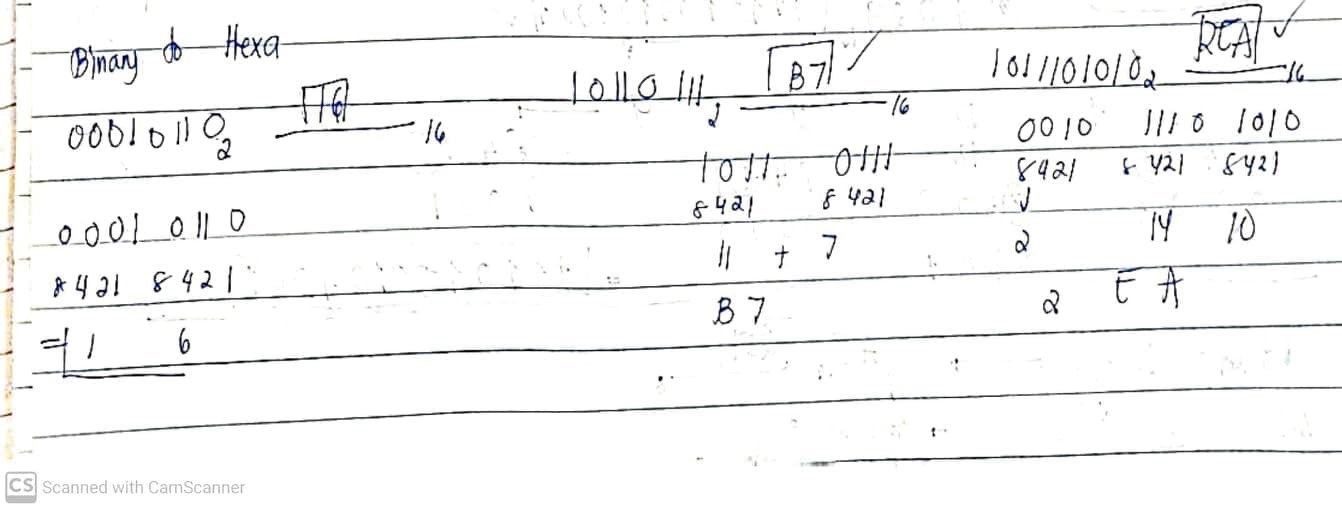 Binary to Hexa
00010110₂ 16 16
0001 0110
8421 8421
= 1 6
10110111₂ B7 16
1011 0111
8421 8421
11 + 7
B7
1011101010₂ 2EA 16
0010 1110 1010
8421 8421 8421
2 14 10
2 E A
CS Scanned with CamScanner